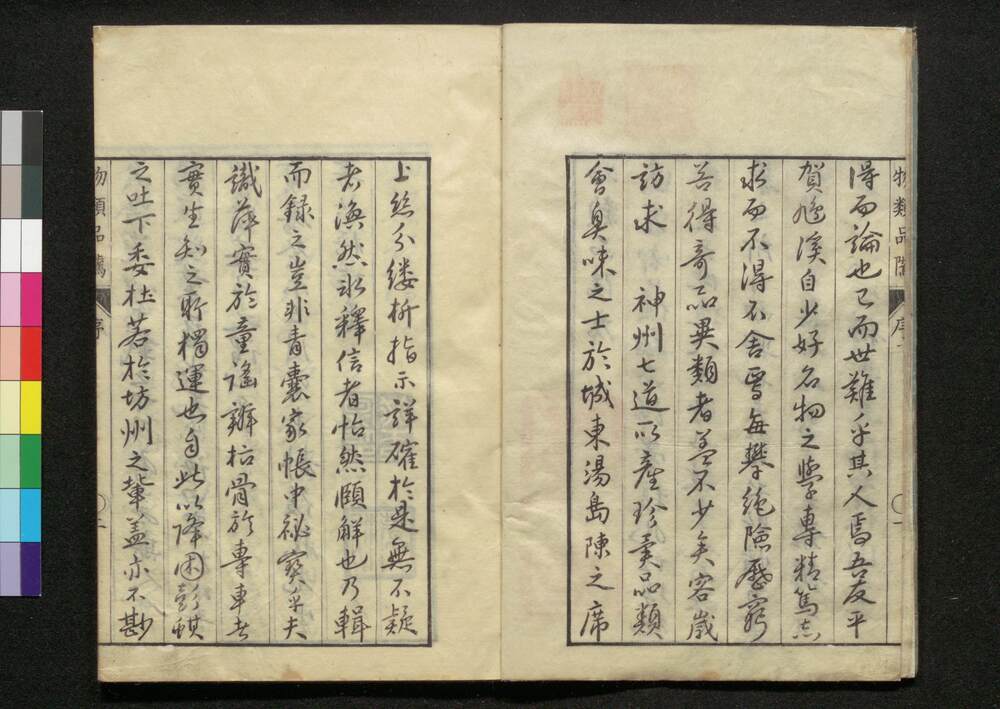 物類品隲 序
得而論也已而世難乎其人焉吾友平
賀鳩溪自少好名物之學專精篤志
求而不得不舍焉每攀絕險歷窮
谷得奇品異類者蓋不少矣客歲
訪求 神州七道所產珍異品類
會臭味之士於城東湯島陳之席
上絲分縷析指示詳確於是無不疑
者渙然氷釋信者怡然頤解也乃輯
而錄之豈非青囊家帳中祕寶乎夫
識萍實於童謠辨枯骨於專車者
實生知之所獨運也自此以降因彭蜞
之吐下委杜若於坊州之輩蓋亦不尠
物類品隲 序